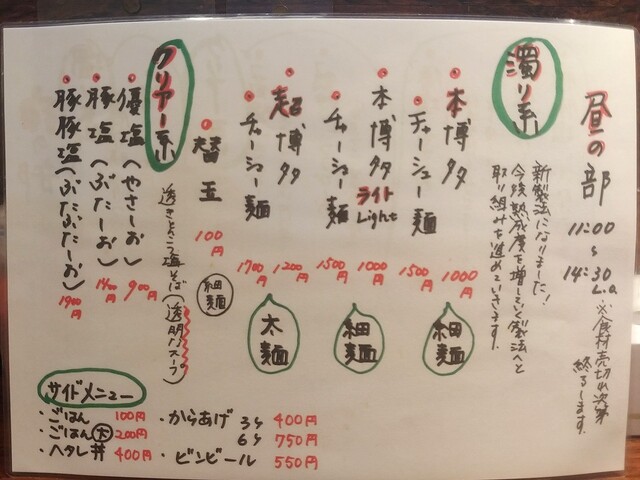 昼の部
11:00
〜
14:30
L.O.
※食材売切れ次第
終了します。
濁り系
新製法になりました!
今後熟成度を増していく製法へと
取り組みを進めていきます。
本博多 1000円
チャーシュー麺 1500円
細麺
本博多ライトLight 1000円
チャーシュー麺 1500円
細麺
超博多 1200円
チャーシュー麺 1700円
太麺
替玉 100円
細麺
クリアー系
透きとおる塩そば(透明スープ)
優塩(やさーしお) 900円
豚塩(ぶたーしお) 1400円
豚豚塩(ぶたぶたーしお) 1900円
サイドメニュー
・ごはん 100円
・ごはん大 200円
・ヘタレ丼 400円
・からあげ 3ケ 400円
6ケ 750円
・ビンビール 550円